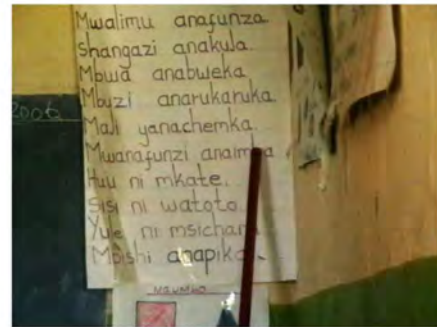 Mwalimu anafunza
Shangazi anakula.
Mbwa anabweka
Mbuzi anarukaruka
2006
Maji yanachemka.
Mwanafunzi anaimba
Huu ni mkate.
Sisi ni watoto.
Yule ni msichana
Mpishi anapika.